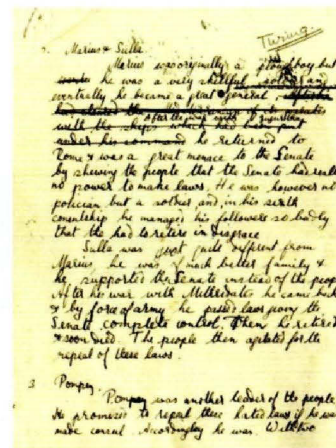 Turing.
2. Marius & Sulla.
Marius was originally a ploughboy but
he was a very skillful soldier and
eventually he became a great general
had cleared the
with the ships which had been put
after the war with Jugurtha
under his command he returned to
Rome & was a great menace to the Senate
by shewing the people that the Senate had really
no power to make laws. He was however no
politician but a soldier and, in his sixth
consulship he managed his followers so badly
that the had to retire in disgrace
Sulla was just quite different from
Marius he was of much better family &
he supported the Senate instead of the people
After he war with Mithredates he came back
& by force of army he passed laws giving the
Senate complete control. Then he retired
& soon died The people then agitated for the
repeal of these laws.
3 Pompey.
Pompey was another leader of the people
He promises to repeal these hated laws if he was
made consul. Accordingly he was. With two